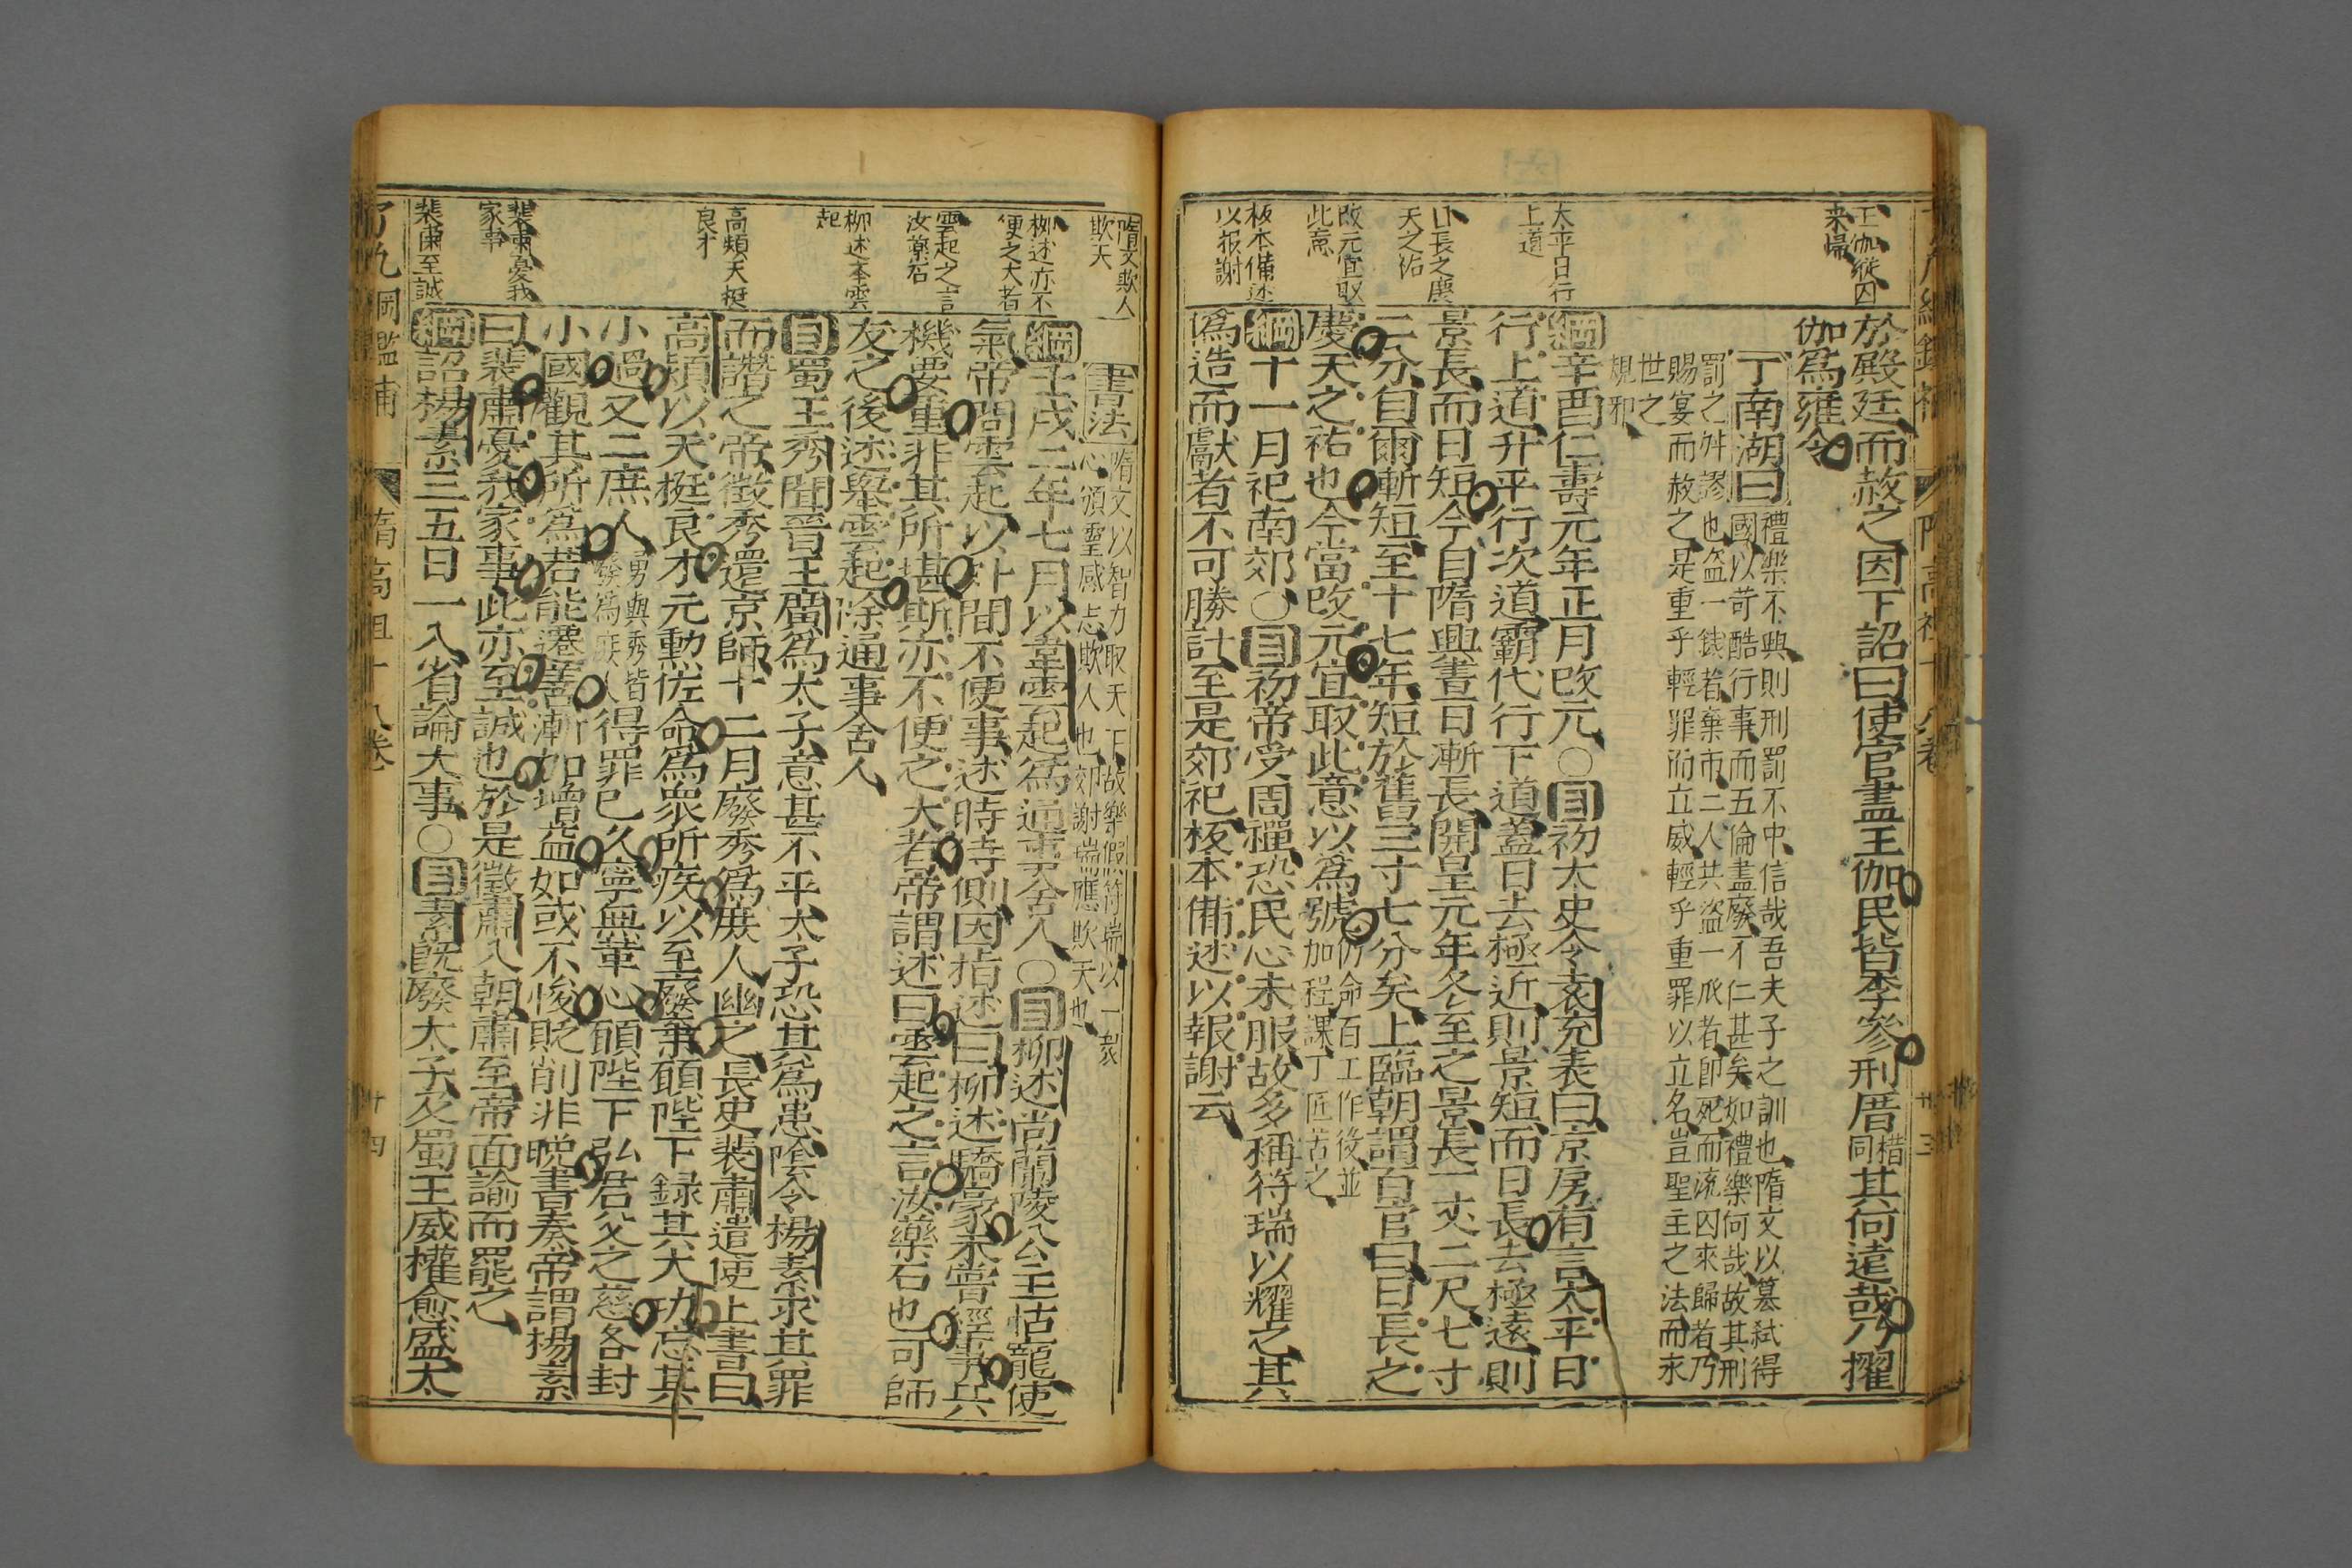 王伽縱囚
来歸
於殿廷而赦之因下詔曰使官盡王伽民皆李參刑厝措同其何遠哉乃擢
伽爲雍令
丁南湖曰禮樂不興則刑罰不中信哉吾夫子之訓也隋文以篡弑得
國以苛酷行事而五倫盡廢不仁甚矣如禮樂何哉故其刑
罰之舛謬也盜一錢者棄市二人共盜一瓜者即死而流囚來歸者乃
賜宴而赦之是重乎輕罪而立威輕乎重罪以立名豈聖主之法而永
世之
規邪
太平日行
上道
綱辛酉仁壽元年正月改元○目初太史令袁充表曰京房有言太平日
行上道升平行次道霸代行下道蓋日去極近則景短而日長去極遠則
日長之慶
天之佑
景長而日短今自隋興晝日漸長開皇元年冬至之景長一丈二尺七寸
二分自爾漸短至十七年短於舊三寸七分矣上臨朝謂百官曰日長之
改元宜取
此意
慶天之祐也今當改元宜取此意以爲號仍命百工作役並
加程課丁匠苦之
板本備述
以报謝
綱十一月祀南郊○目初帝受周禪恐民心未服故多稱符瑞以耀之其
僞造而獻者不可勝計至是郊祀板本備述以報謝云
隋文欺人
欺天
書法隋文以智力取天下故樂假符瑞以一衆
心頒靈感志欺人也郊謝瑞應欺天也
柳述亦不
便之大者
綱壬戌二年七月以韋雲起爲通事舍人○目柳述尚蘭陵公主怙寵使
氣帝問雲起以外間不便事述時侍側因指述曰柳述驕豪未嘗經事兵
雲起之言
汝藥石
機要重非其所堪斯亦不便之大者帝謂述曰雲起之言汝藥石也可師
柳述奉雲
起
友之後述舉雲起除通事舍人
目蜀王秀聞晉王廣爲太子意甚不平太子恐其爲患陰令楊素求其罪
而譖之帝徵秀還京師十二月廢秀爲庶人幽之長史裴肅遣使上書曰
高熲天挺
良才
高熲以天挺良才元勳佐命爲衆所疾以至廢棄願陛下録其大功忘其
小過又二庶人勇與秀皆
廢爲庶人得罪已久寧無革心願陛下弘君父之慈各封
小國觀其所爲若能遷善漸加增益如或不悛貶削非晩書奏帝謂楊素
裴肅憂我
家事
曰裴肅憂我家事此亦至誠也於是徵肅入朝肅至帝面諭而罷之
裴肅至誠
綱詔楊素三五日一入省論大事○目素既廢太子及蜀王威權愈盛太
了凡綱鑑補 隋高祖十八卷 廿四